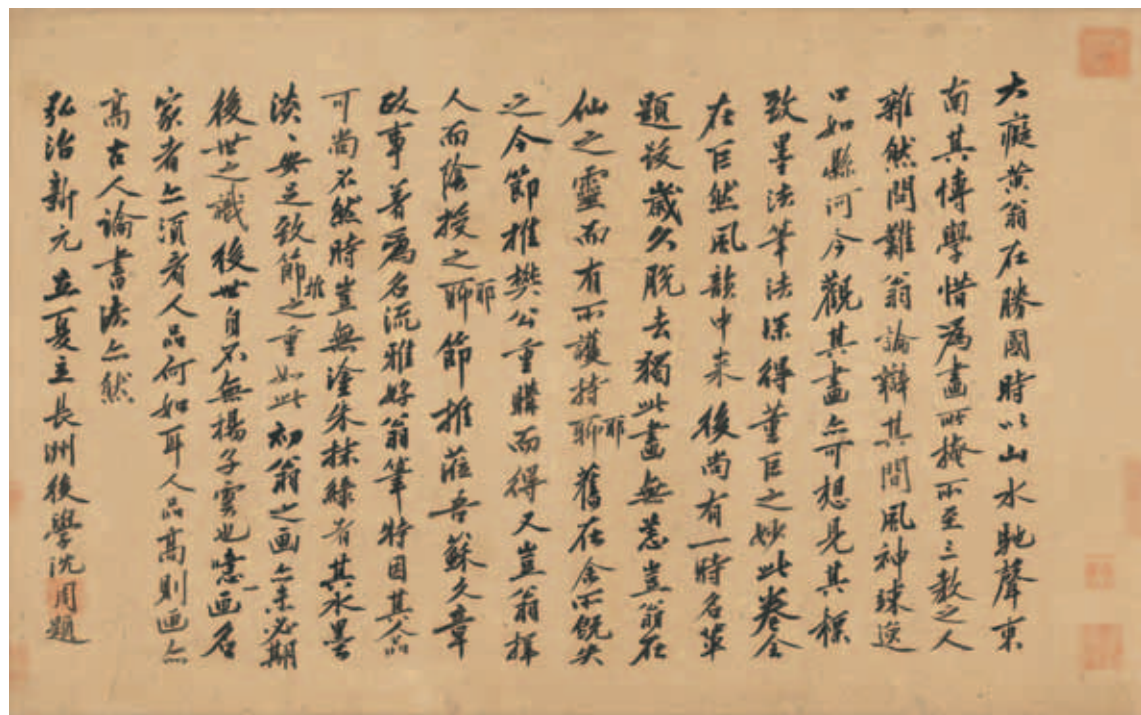 大癡黃翁在勝國時以山水馳聲東
南其博學惜為畫所掩所至三教之人
雜然問難翁論辯其間風神竦逸
口如懸河今觀其畫亦可想見其標
致墨法筆法深得董巨之妙此卷全
在巨然風韻中来後尚有一時名筆
題跋歲久脫去獨此畫無恙豈翁在
仙之靈而有所護持聊耶舊在余所既失
之今節推樊公重購而得又豈翁擇
人而陰授之聊耶節推蒞吾蘇文章
政事著為名流雅好翁筆特因其人品
可尚不然時豈無塗朱抹綠者其水墨
淡、安足致節推之重如此初翁之画亦未必期
後世之識後世自不無揚子雲也噫画名一
家者亦須看人品何如耳人品高則画亦
高古人論書法亦然
弘治新元立夏立長洲後學沈周題